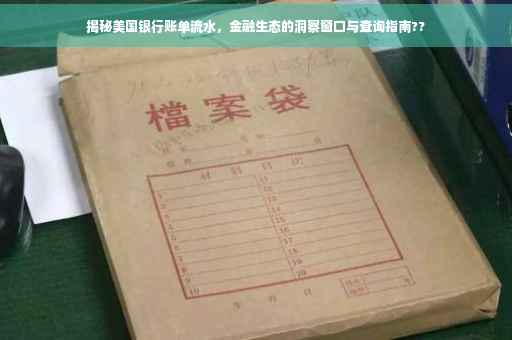 揭秘美国银行账单流水，金融生态的洞察窗口与查询指南??
檔案袋
材料目次
1 11
2 12
3 13
4 14
5 15
6 16
7 17
8 18
9 19
10 20
年 月 日